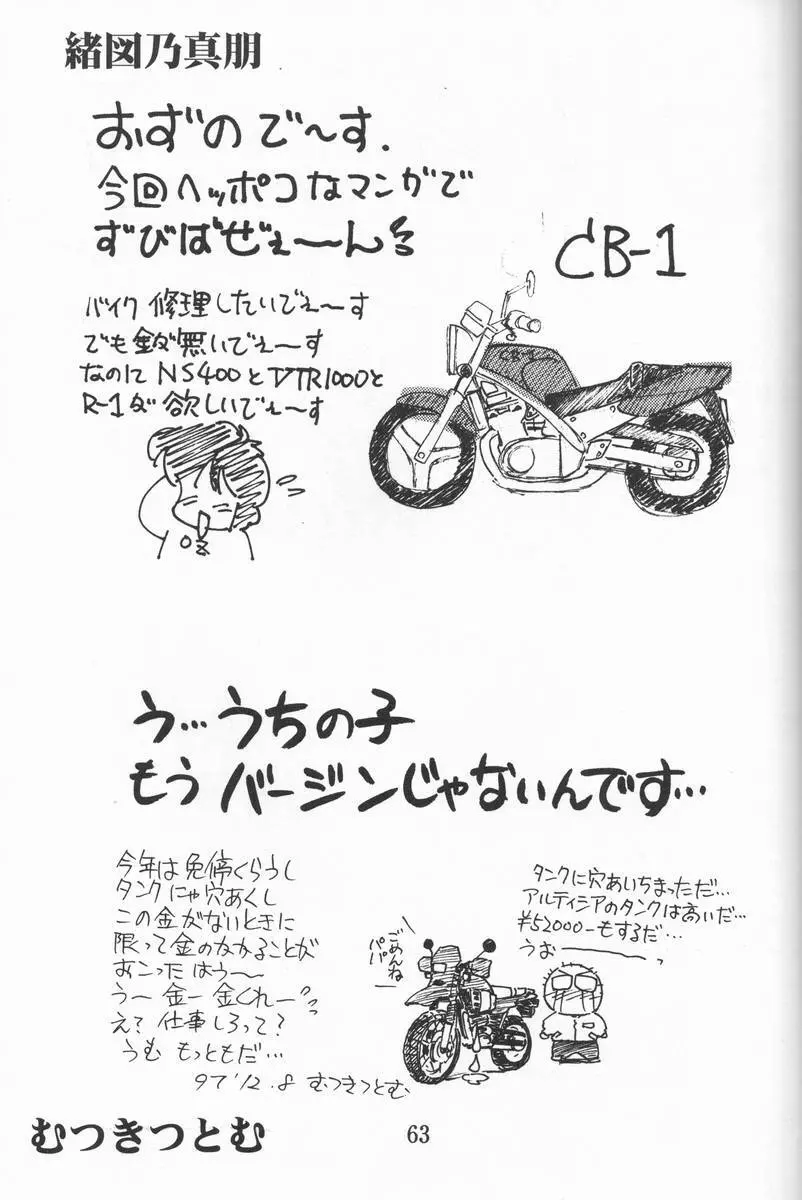 緒図乃真朋
おずの で〜す.
今回ヘッポコなマンガで
ずびばぜぇ〜ん
CB-1
バイク 修理したいでぇ〜す
でも金が無いでぇ〜す
なのに NS400とVTR1000と
R-1が欲しいでぇ〜す
CB-1
う…うちの子
もうバージンじゃないんです…
今年は免停くらうし
タンクにゃ穴あくし
この金がないときに
限って金のかかることが
おこった はう〜
うー 金ー 金くれー
え? 仕事しろって?
うむ もっともだ…
97'12.8 むつきつとむ
ごめんね
パパ
タンクに穴あいちまっただ…
アルティシアのタンクは高いだ…
¥52000-もするだ…
うおー
むつきつとむ
63